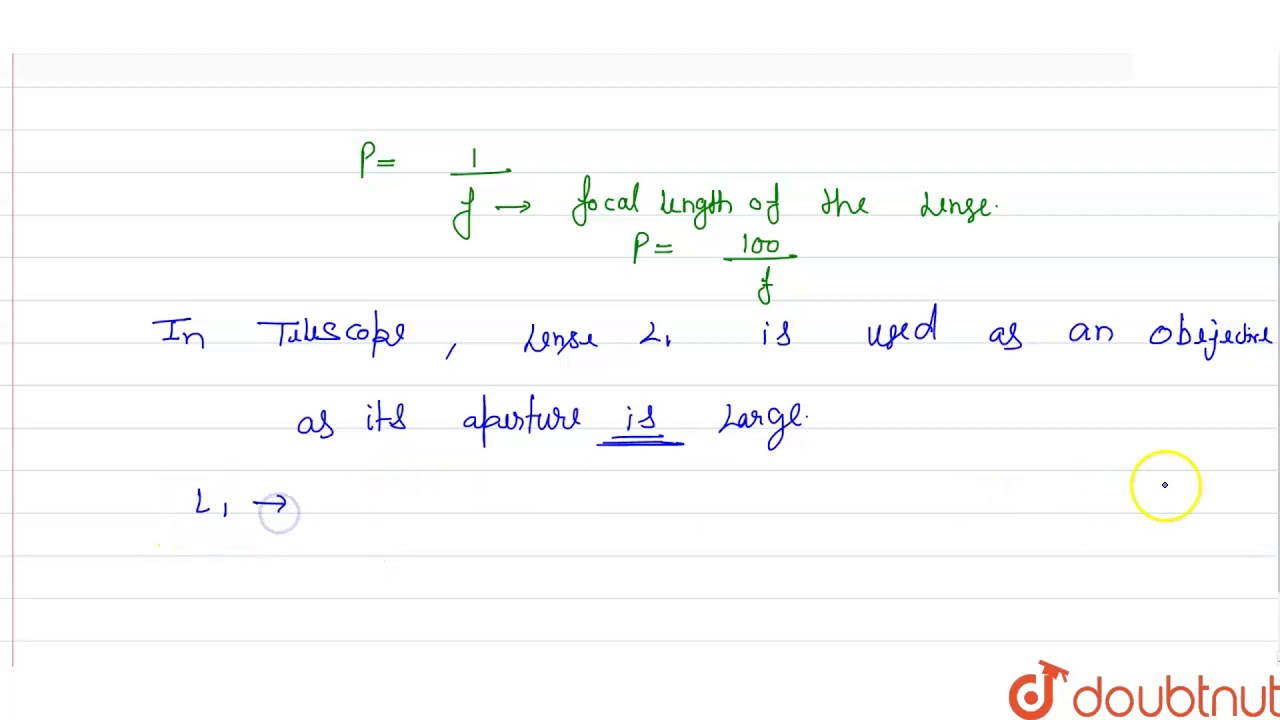 P = 1
f → focal length of the lense.
P = 100
f
In Telescope, lense L1 is used as an obejective
as its aperture is Large.
L1 →
doubtnut